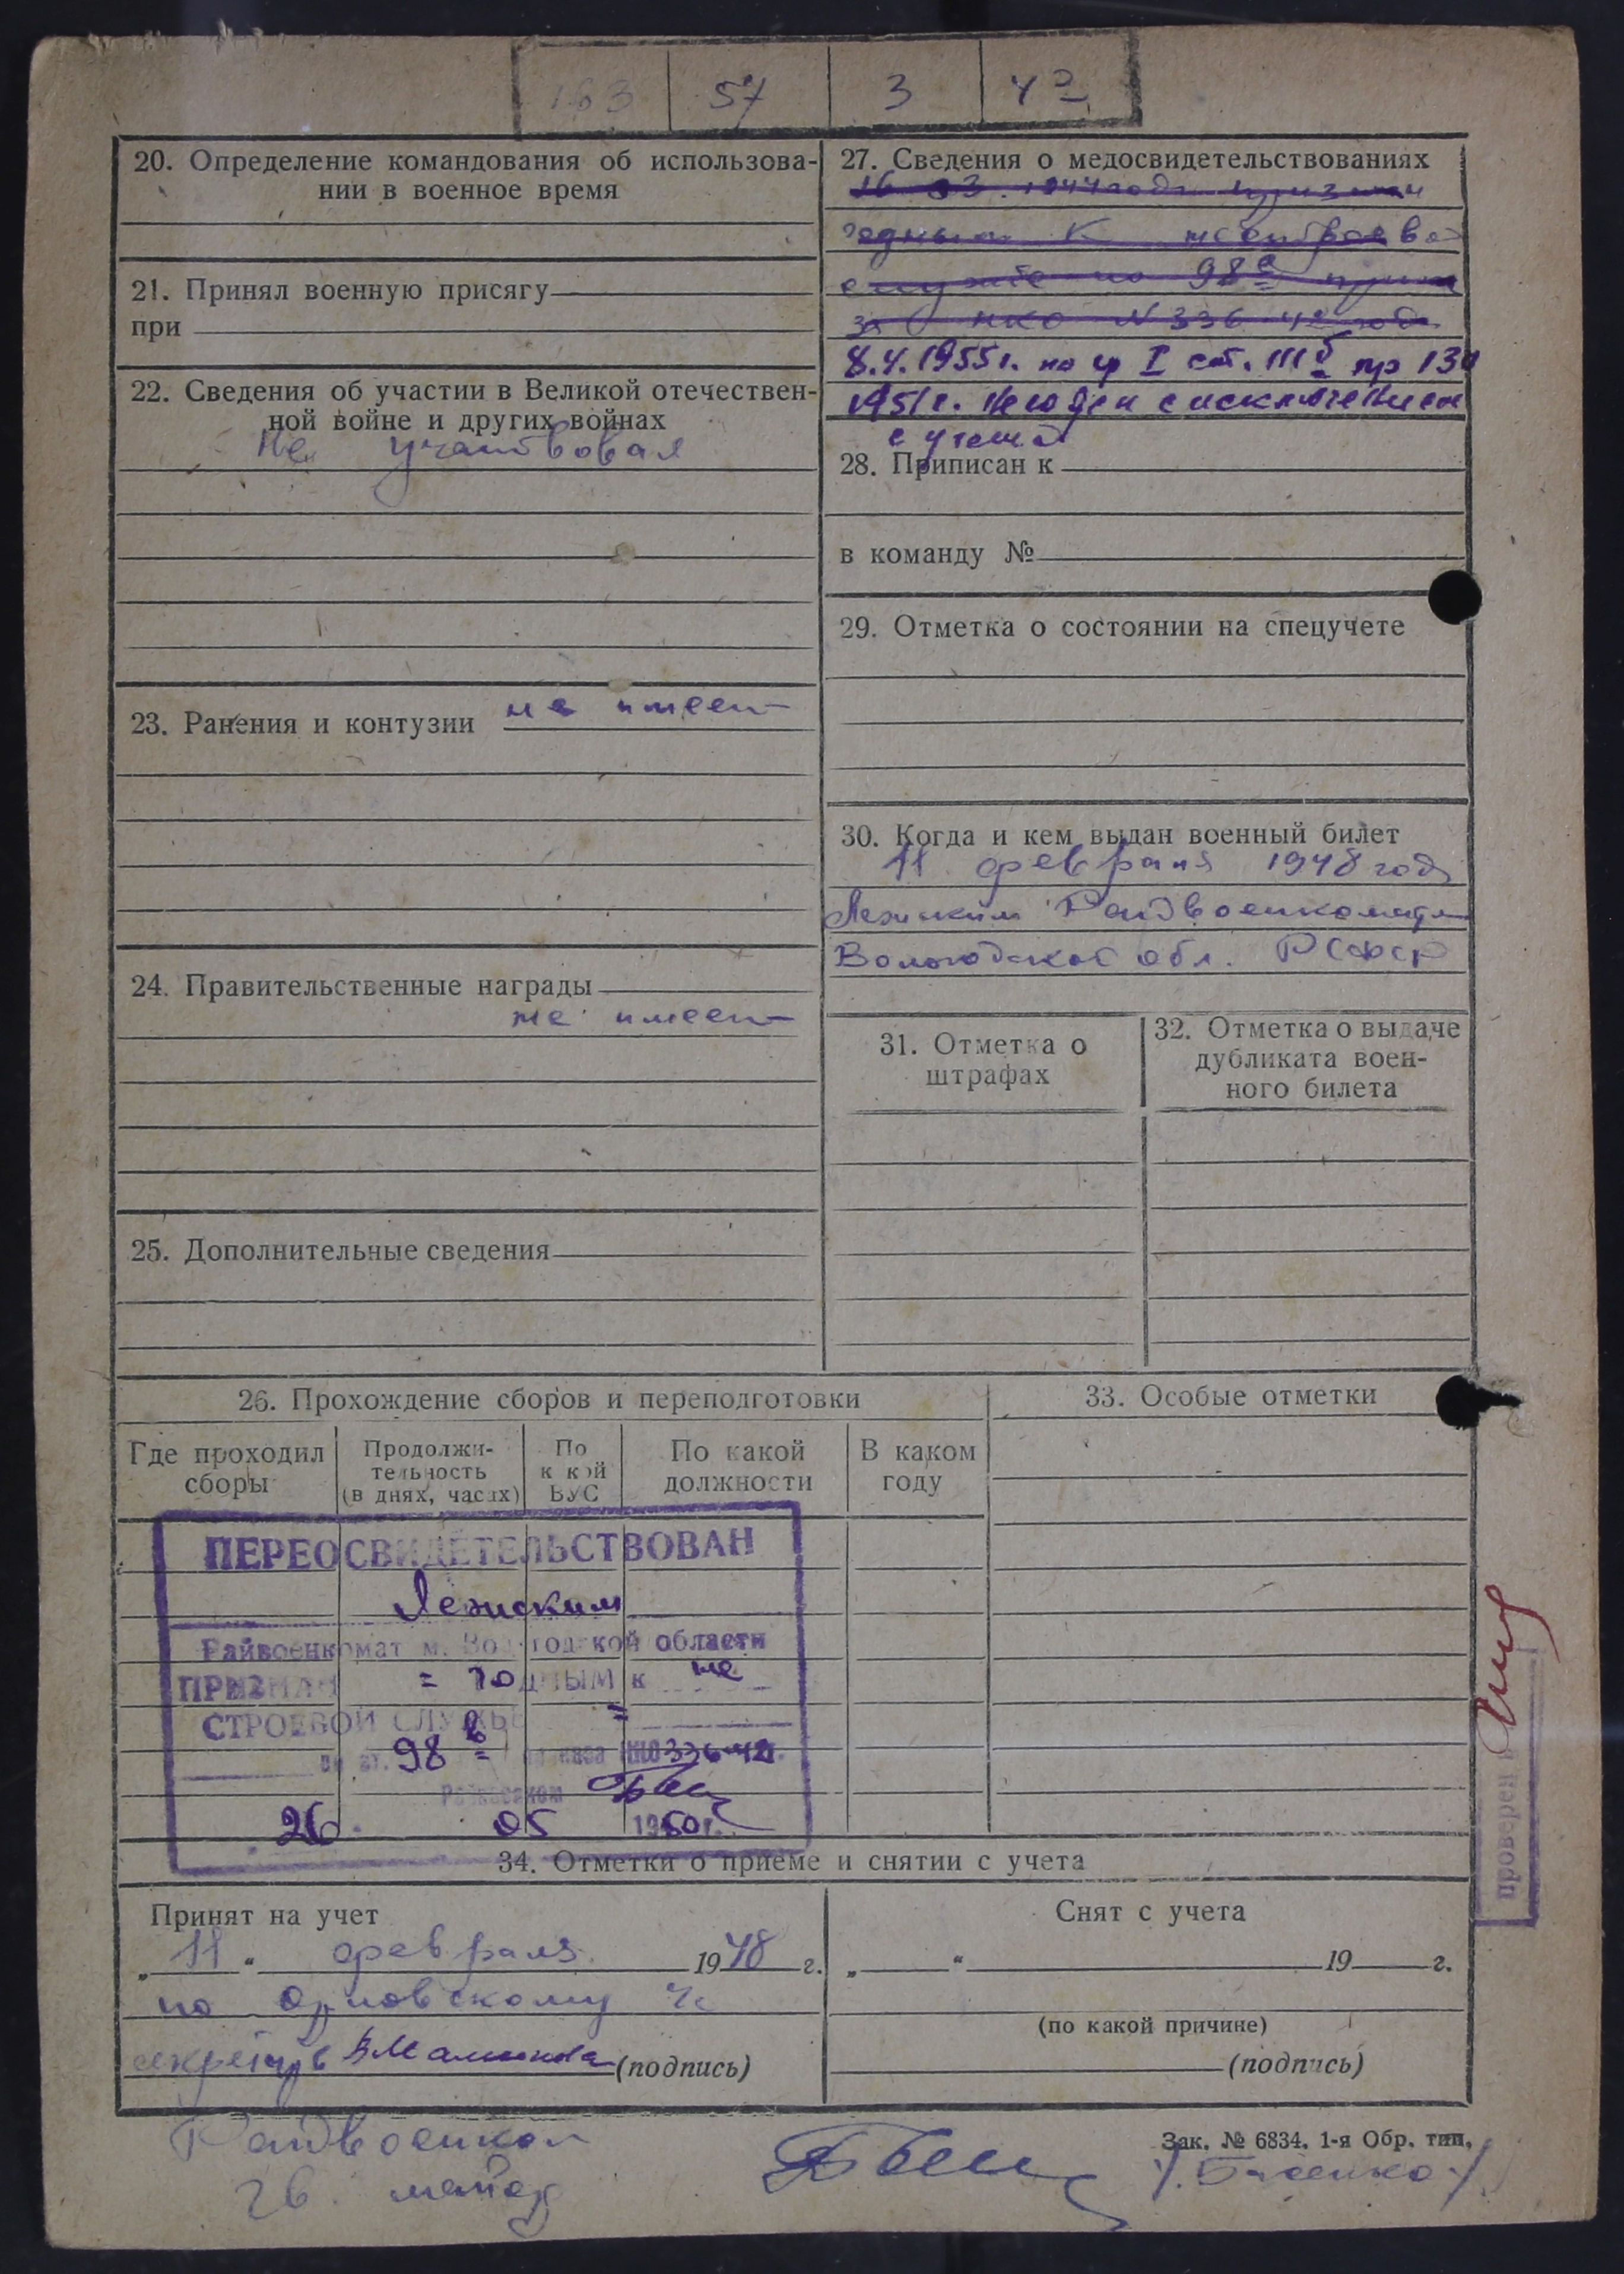 163 57 3 42
20. Определение командования об использова-
нии в военное время
21. Принял военную присягу
при
22. Сведения об участии в Великой отечествен-
ной войне и других войнах
Не участвовал
23. Ранения и контузии не имеет
24. Правительственные награды
не имеет
25. Дополнительные сведения
27. Сведения о медосвидетельствованиях
16 03 1944 года признан
годным к нестроевой
службе по 98а
НКО N 336 42 года
8.4.1955г. по гр I ст. IIIб пр 130
1951г. Негоден с исключением
с учета
28. Приписан к
в команду №
29. Отметка о состоянии на спецучете
30. Когда и кем выдан военный билет
11 февраля 1948 года
Лежским Райвоенкоматом
Вологодской обл. РСФСР
31. Отметка о
штрафах
32. Отметка о выдаче
дубликата воен-
ного билета
26. Прохождение сборов и переподготовки
Где проходил
сборы
Продолжи-
тельность
(в днях, часах)
По
к кой
ВУС
По какой
должности
В каком
году
33. Особые отметки
ПЕРЕОСВИДЕТЕЛЬСТВОВАН
Лежским
Райвоенкомат м. Вологодской области
ПРИЗНАН = годным к не
СТРОЕВОЙ СЛУЖБЕ =
по ст. 98 в приказа НКО 336-42г.
Райвоенком
26. 05 1950г.
проверен
34. Отметки о приеме и снятии с учета
Принят на учет
„11“ февраля 1948 г.
по Орловскому
секретарь ВМалинова (подпись)
Снят с учета
„ “ 19 г.
(по какой причине)
(подпись)
Зак. № 6834. 1-я Обр. тип.
Райвоенком
гв. майор